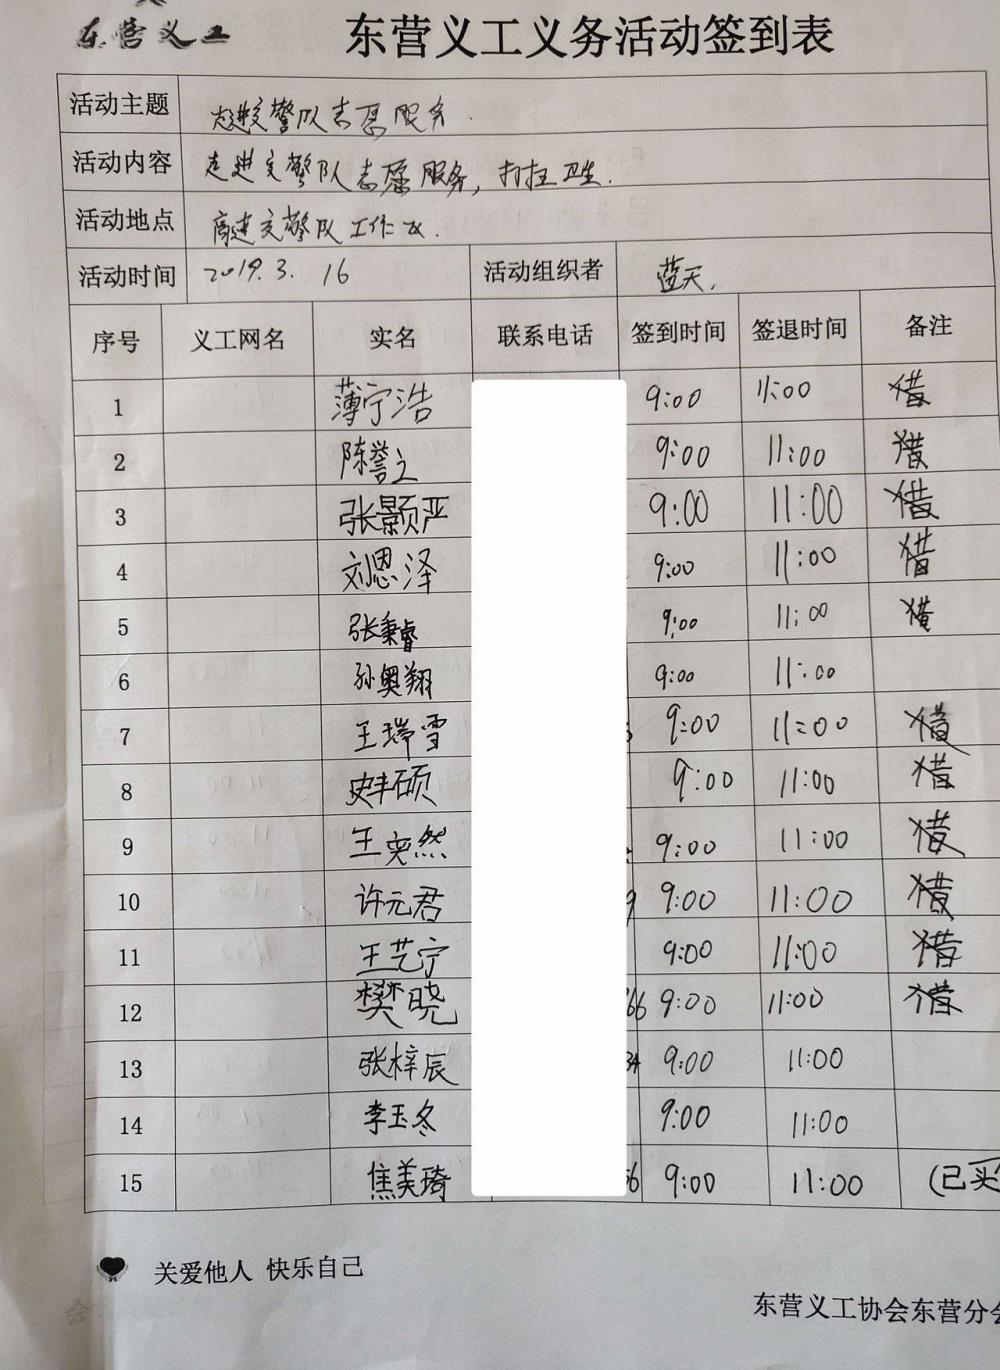 东营义工 东营义工义务活动签到表
活动主题 走进交警队志愿服务.
活动内容 走进交警队志愿服务,打扫卫生.
活动地点 交警队工作
活动时间 2019.3.16 活动组织者 蓝天.
序号 义工网名 实名 联系电话 签到时间 签退时间 备注
1 薄宁浩 9:00 11:00 借
2 陈誉之 9:00 11:00 借
3 张景颢严 9:00 11:00 借
4 刘恩泽 9:00 11:00 借
5 张秉睿 9:00 11:00 借
6 孙奥翔 9:00 11:00
7 王瑞雪 9:00 11:00 借
8 史丰硕 9:00 11:00 借
9 王奕然 9:00 11:00 借
10 许元君 9 9:00 11:00 借
11 王艺宁 9:00 11:00 借
12 樊晓 66 9:00 11:00 借
13 张梓辰 34 9:00 11:00
14 李玉冬 9:00 11:00
15 焦美琦 56 9:00 11:00 (已买
关爱他人 快乐自己
东营义工协会东营分会